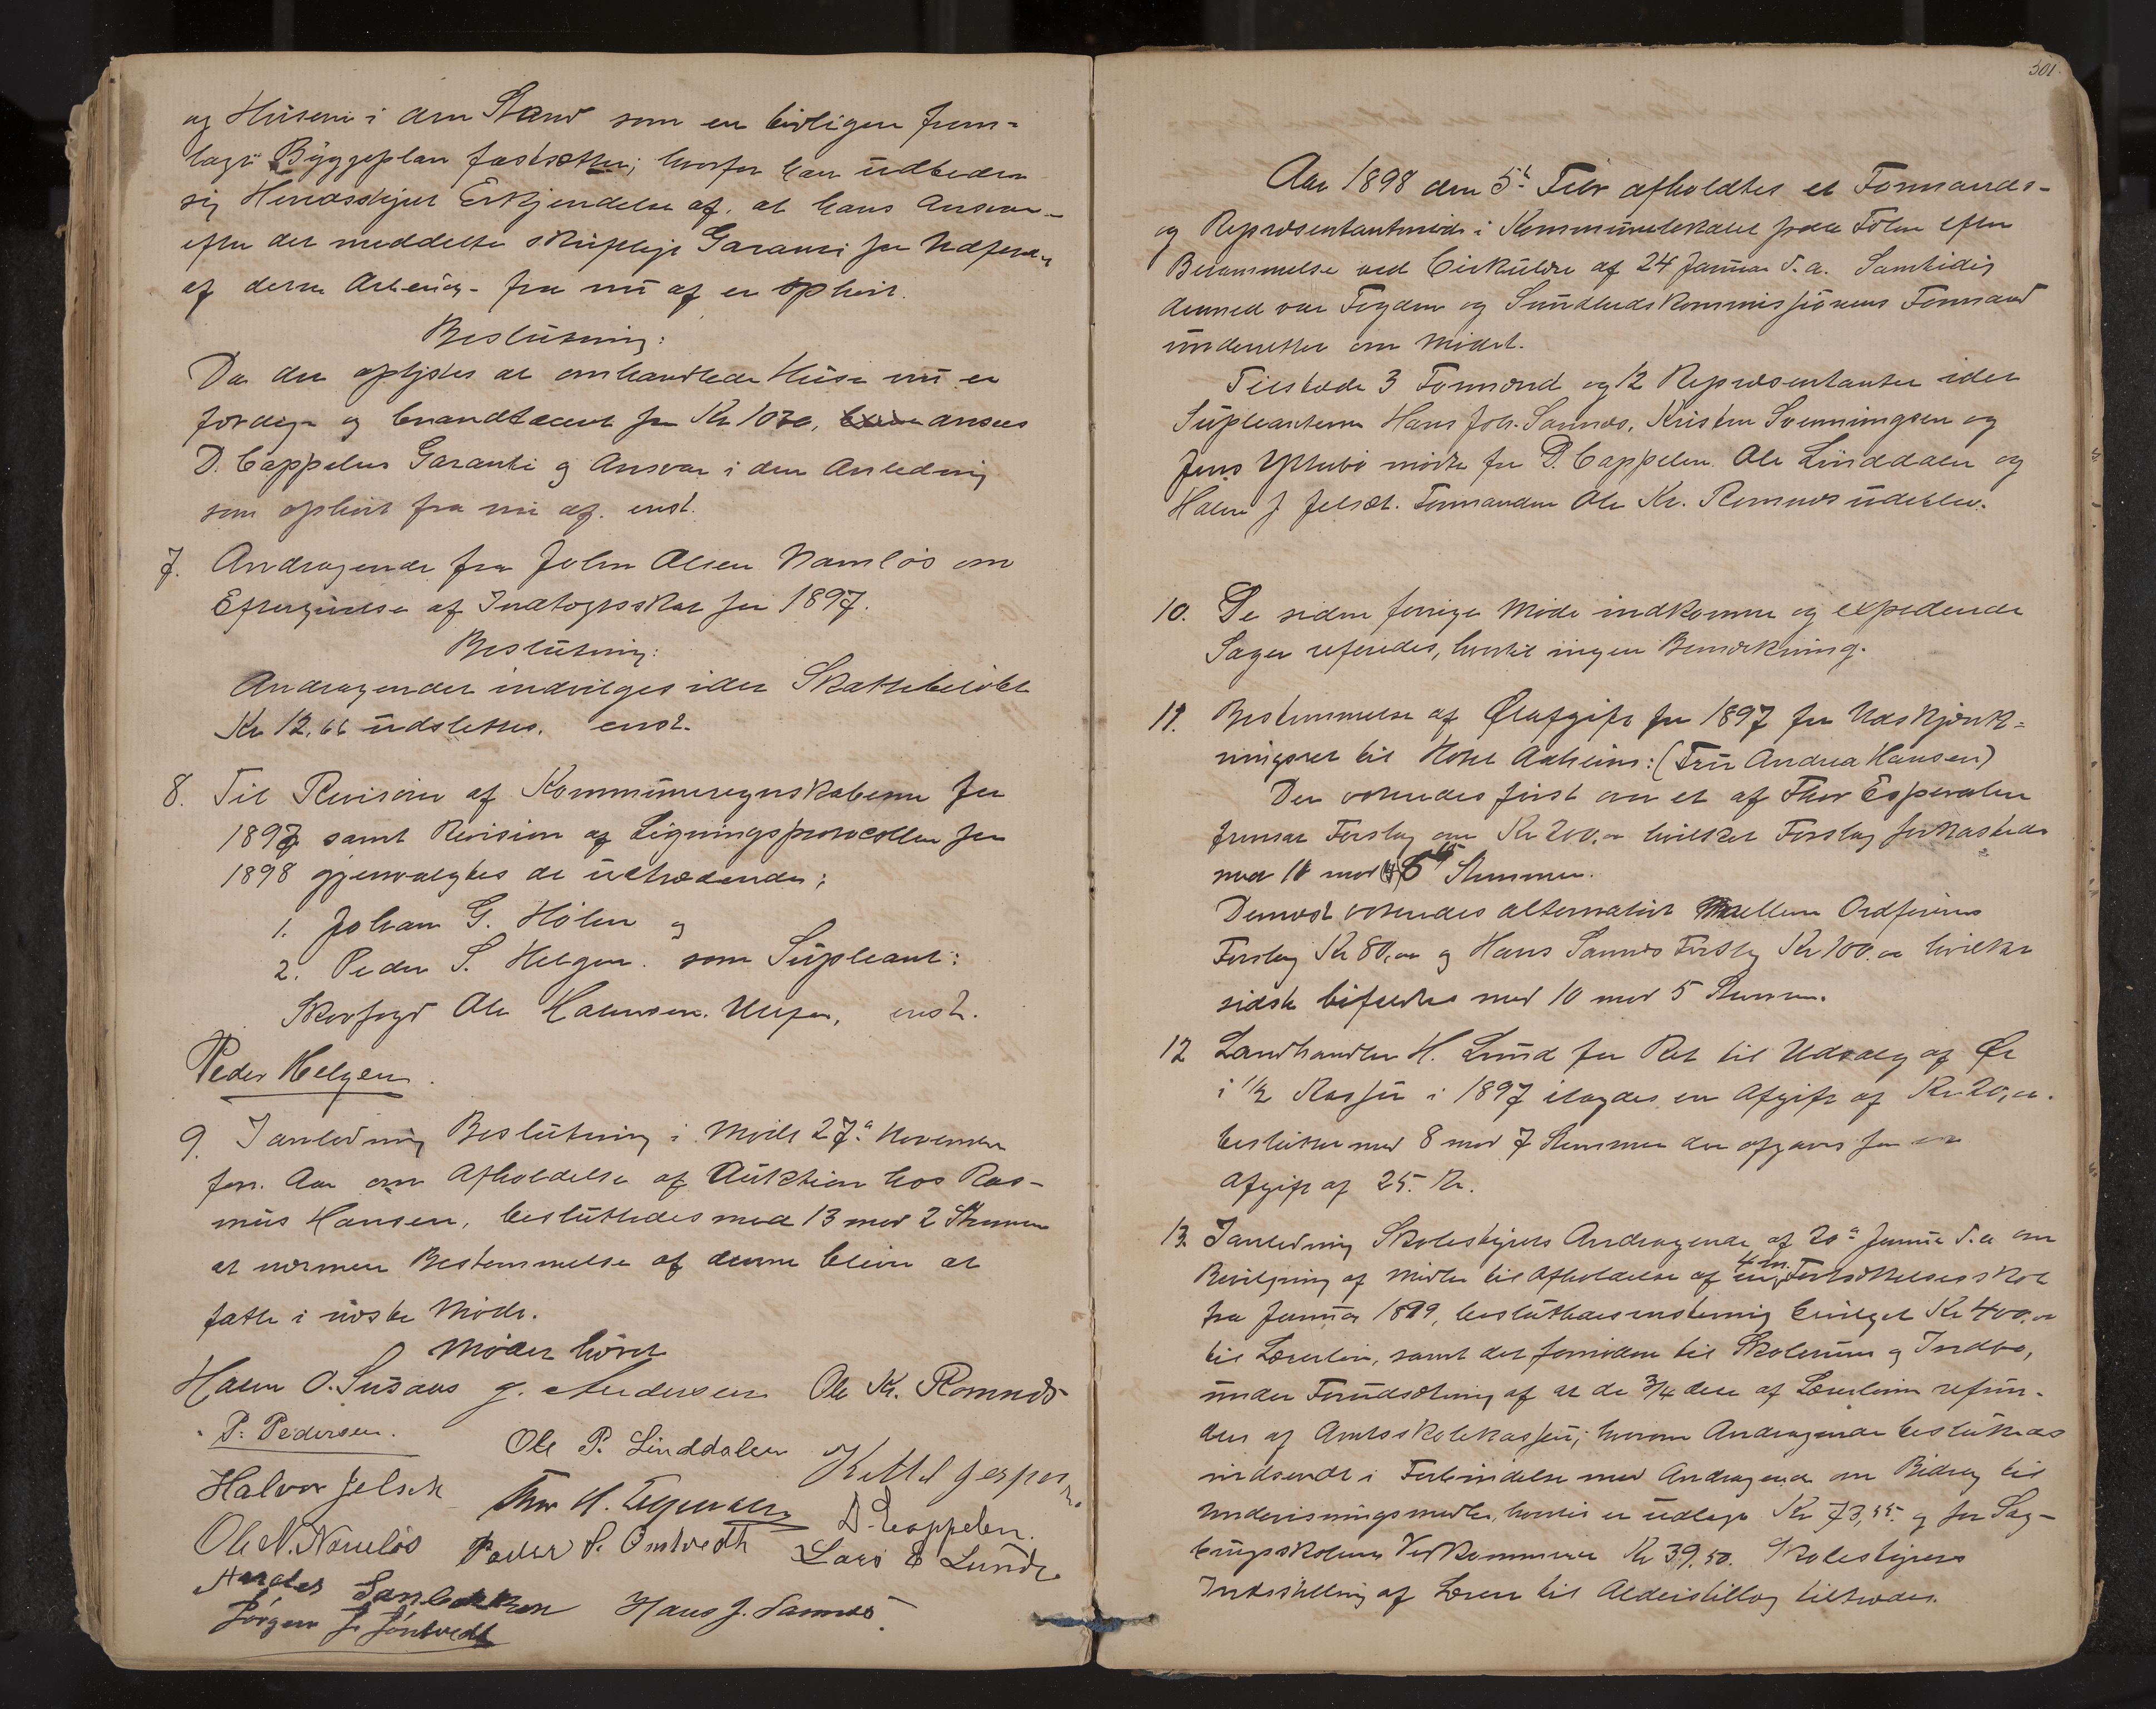 og Husene i den Stand som en tidligere frem-
lagt Byggeplan fastsætter; hvorfor han udbeder
sig Herredsstyret Erkjendelse af, at hans Ansvar
efter det meddelte skriftlige Garanti for Udførelse
af derne Arbeide fra nu af er ophørt.
Beslutning:
Da det oplystes at omhandlede Huse nu er
færdige og brandtaxeret for Kr 1030, ansees
D. Cappelens Garanti og Ansvar i den Anledning
som ophørt fra nu af. enst.
7. Andragende fra John Olsen Namløs om
Eftergivelse af Indtægtsskat for 1897.
Beslutning:
Andragendet indvilges idet Skattebeløbet
Kr 12,66 udslettes. enst.
8. Til Revisorer af Kommuneregnskaberne for
1897 samt Revision af Ligningsprotocollen for
1898 gjenvalgtes de udtrædende:
1. Johan G. Holen og
2. Peder S. Helgen. som Supleant:
Skovfogd Ole Halvorsen. enst.
Peder Helgen
9. I anledning Beslutning i Møde 27de November
forr. Aar om Afholdelse af Auktion hos Ras-
mus Hansen, besluttedes med 13 mod 2 Stemmer
at nærmere Bestemmelse af denne bliver at
fatte i næste Møde.
Mødet hævet
Halvor O. G. Andersen Ole Kr. Romnæs
P. Pedersen.
Ole P. Linddalen Kittel Jesper
Halvor Jelset Thor H. Espersen D. Cappelen.
Ole N. Namløs Peder P. Omtvedt Lars E Lunde
Sanbakken Hans J. Sannæs
Jørgen J. Jøntvedt
301.
Aar 1898 den 5te Febr afholdtes et Formands-
og Repræsentantmøde i Kommunelokalet paa Folen efter
Berammelse ved Cirkulære af 24 Januar d.a. Samtidig
dermed var Fogden og Sundhedskommissionens Formand
underrettet om Mødet.
Tilstede 3 Formænd og 12 Repræsentanter idet
Supleanterne Hans Joh. Sannæs, Kristen Svenningsen og
Jens Yttebø mødte for D. Cappelen. Ole Linddalen og
Halvor J Jelset. Formanden Ole Kr. Romnæs udeblev.
10. De siden forrige Møde indkomne og expederede
Sager refereredes, hvortil ingen Bemærkning.
11. Bestemmelse af Ølafgift for 1897 for Udskjænk-
ningsret til Hotel Aaheim: (Fru Andrea Hansen)
Der voteredes først over et af Thor Espersen
fremsat Forslag om Kr 200.00 hvilket Forslag forkastedes
med 10 mod 5 Stemmer.
Dernæst voteredes alternativt mellem Ordførerens
Forslag Kr 80,00 og Hans Sannæs Forslag Kr 100.00 hvilket
sidste bifaldtes med 10 mod 5 Stemmer.
12 Landhandler H. Lund for Ret til Udsalg af Øl
i 1/2 Kasser i 1897 ilagdes en Afgift af Kr. 20,00.
besluttet med 8 mod 7 Stemmer der afgaves for en
Afgift af 25. Kr.
13. I anledning Skolestyrets Andragende af 20de Januar d.a om
Bevilgning af Midler til Afholdelse af 4 m. Fortsættelsesskole
fra Januar 1899, besluttedes enstemmig bevilget Kr 400.00
til Lærerløn, samt det fornødne til Skolerum og Indbo,
under Forudsætning af at de 3/4 dele af Lærerlønnen refun-
deres af Amtsskolekassen; hvorom Andragende besluttedes
indsendt i Forbindelse med Andragende om Bidrag til
Undervisningsmidler, hvortil er udlagt Kr 73,55. og for Sag-
brugsskolens Vedkommende Kr 39.50. Skolestyrets
Indstilling af Lærere til Alderstillæg tiltrædes.